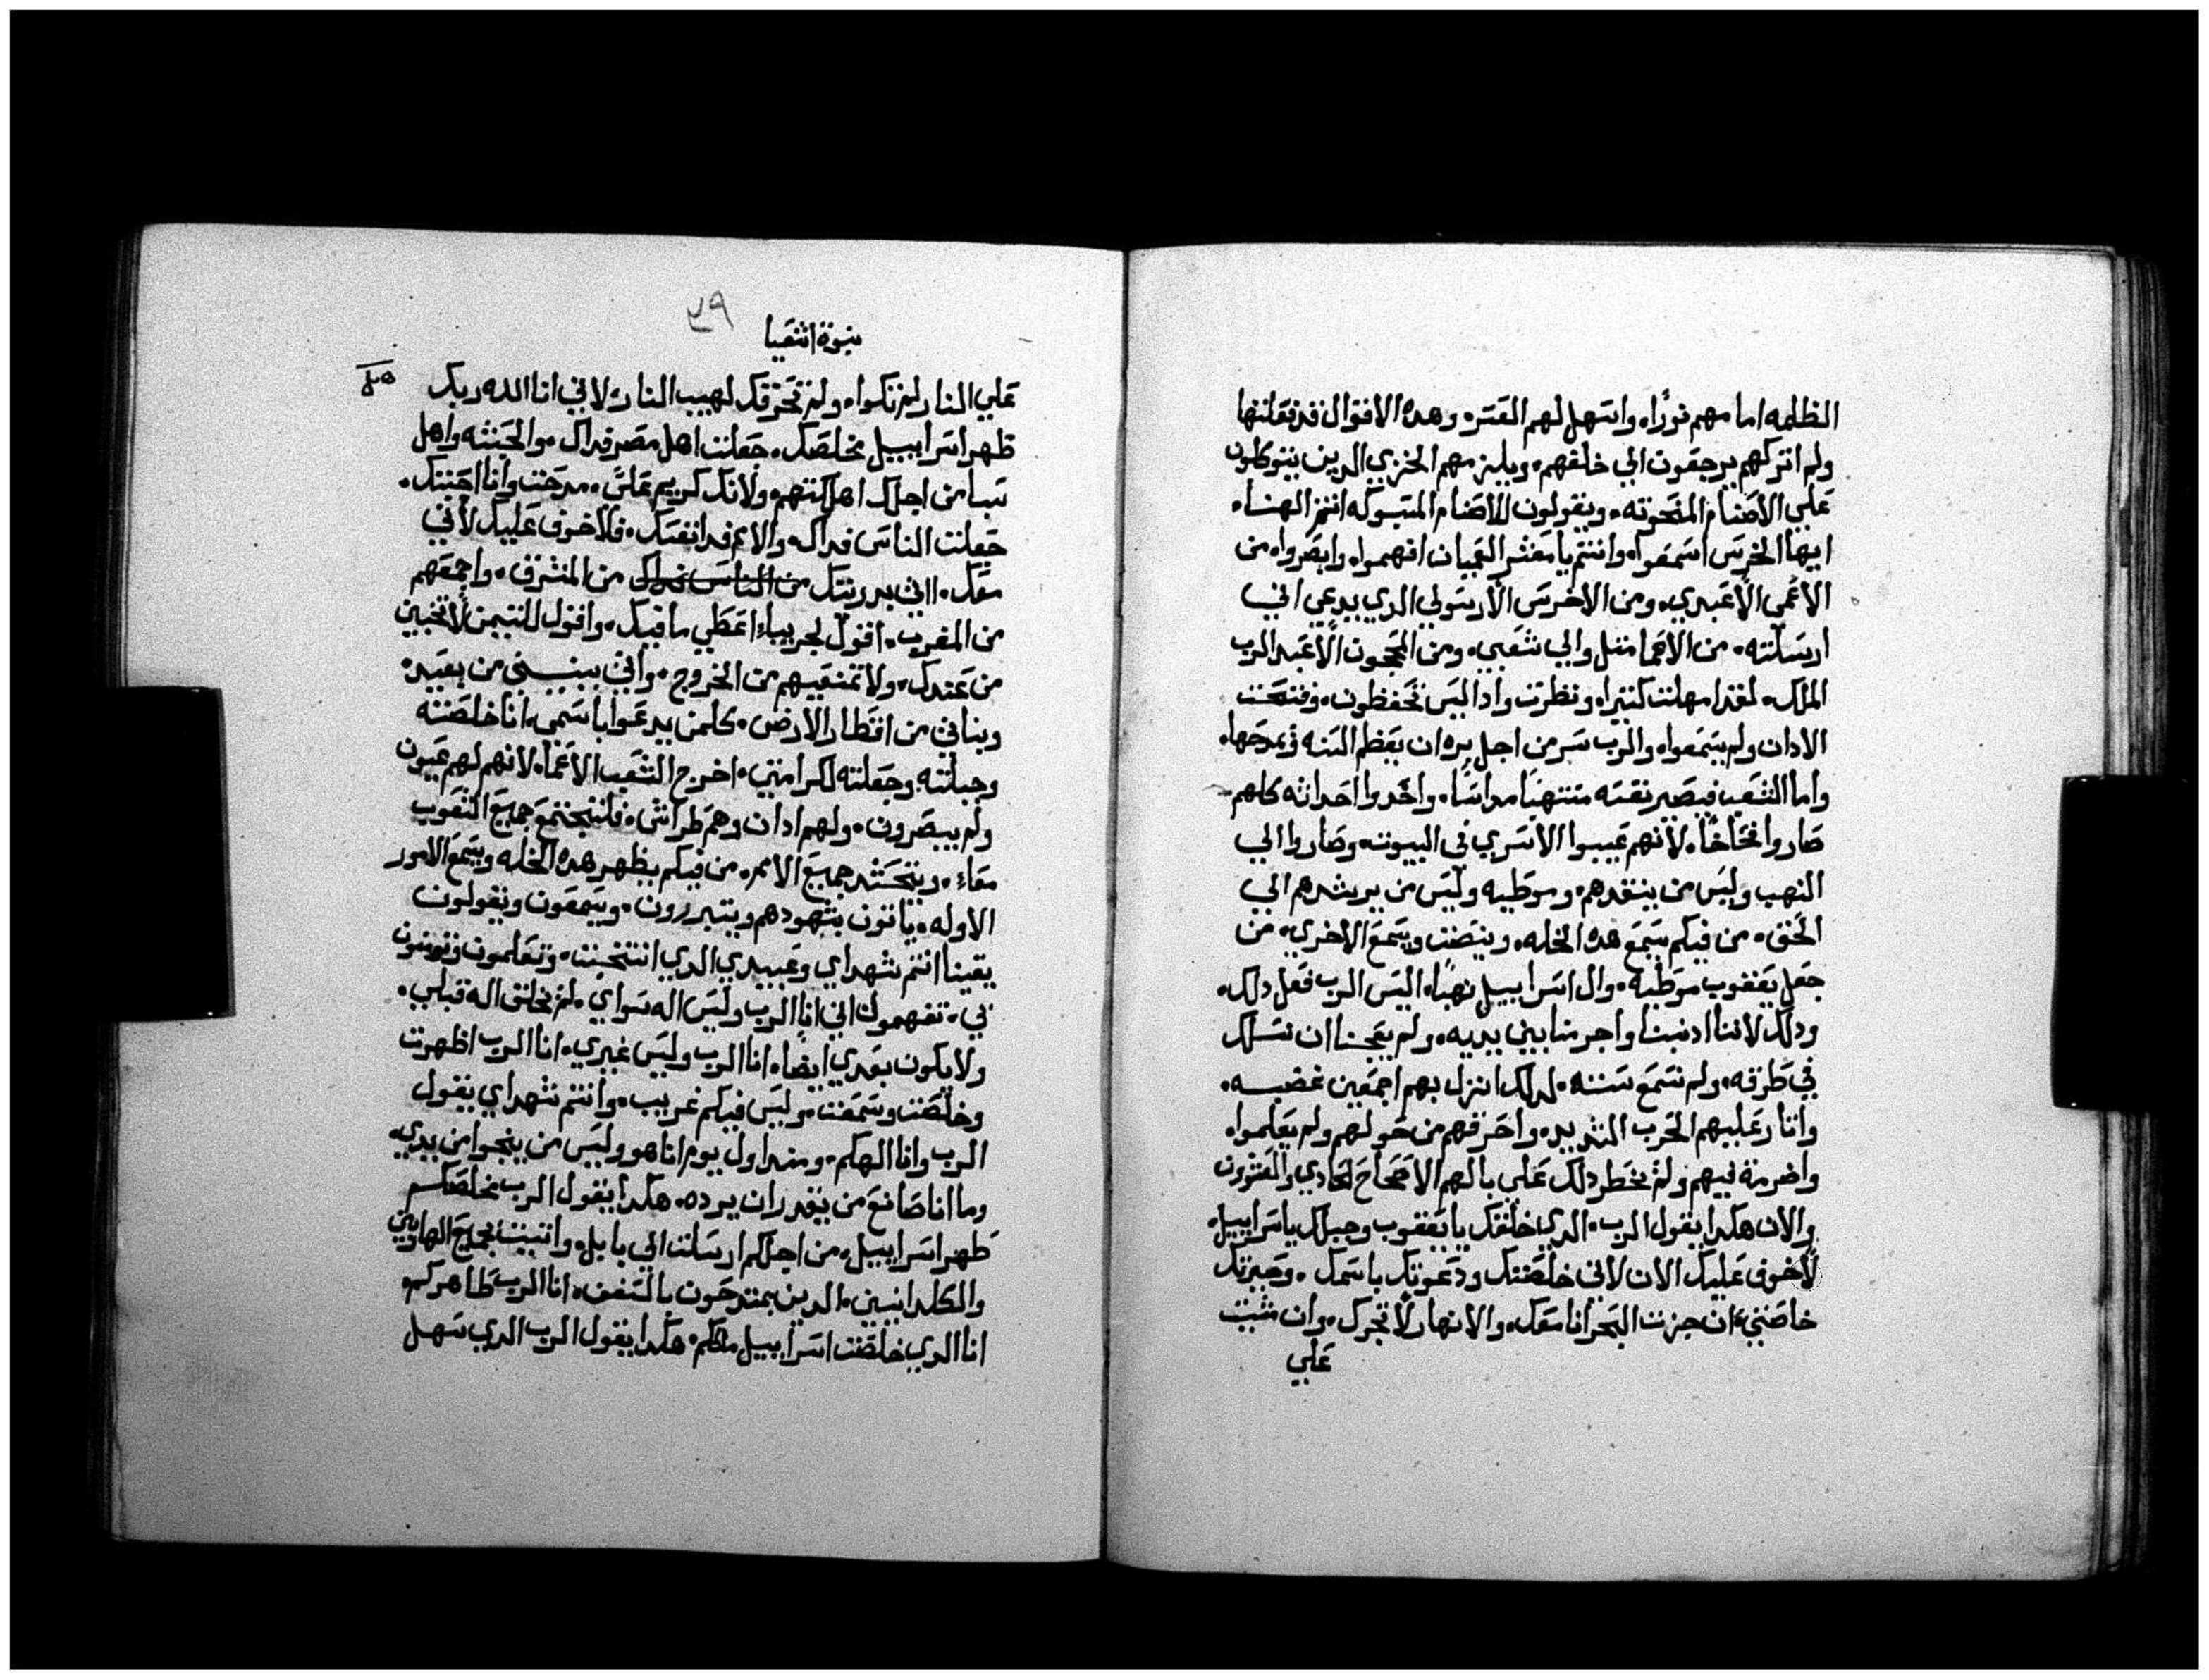 الظلمه امامهم نورًا، واسهل لهم العسره وهده الاقوال قد فعلتها
ولم اتركهم يرجعون الي خلفهم، ويلزمهم الخزي الدين يتوكلون
علي الاصنام المنحوته، ويقولون للاصنام المسبوكه انتم الهنا،
ايها الخرس اسمعوا، وانتم يا معشر العميان افهموا، وابصروا، من
الاعمي الا عبدي، ومن الاخرس الا رسولي الدي يدعي اني
ارسلته، من الاعما مثل والي شعبي، ومن المحجون الا عبد الرب
الملك، لقد امهلت كثيرا، ونظرت وادا ليس تحفظون، وفتحت
الادان ولم يسمعوا، والرب سر من اجل بره ان يعظم السنه ويمدحها،
واما الشعب فيصير نفسه منتهبًا مداسًا، واخدوا احداثه كلهم
صاروا فخاخًا، لانهم غيبوا الاسري في البيوت، وصاروا الي
النهب وليس من ينقدهم، وموطيه وليس من يرشدهم الي
الحق، من فيكم يسمع هده الخله، وينصت ويسمع الاخري، من
جعل يعقوب موطيه، وال اسراييل نهبًا، اليس الرب فعل دلك،
ودلك لاننا ادنبنا واجرمنا بين يديه، ولم يعجبنا ان نسلك
في طرقه، ولم نسمع سننه، لدلك انزل بهم اجمعين غضبه،
واثار عليهم الحرب الشديد، واحرقهم من حولهم ولم يعلموا،
واضرمة فيهم ولم يخطر دلك علي بالهم الاصحاح الحادي والعشرون
والان هكدا يقول الرب، الدي خلقك يا يعقوب وجبلك يا سراييل،
لا خوف عليك الان لاني خلصتك ودعوتك باسمك، وصيرتك
خاصتي، ان جزت البحر انا معك، والانهار لا تجرك، وان مشيت
علي
٣٩
نبوة اشعيا
علي النار لم تكوا، ولم تحرقك لهيب النار، لاني انا الله ربك
ظهر اسراييل مخلصك، جعلت اهل مصر فداك، والحبشه واهل
سبا من اجلك اهلكتهم، ولانك كريم عليَّ، مدحت وانا احبتك،
جعلت الناس فداك، والامم فدا نفسك، فلا خوف عليك لاني
معك، اتي بدريتك من الناس فداك من المشرق، واجمعهم
من المغرب، اقول لجربياء اعطي ما فيك، واقول للتيمن لا تخبين
من عندك، ولا تمنعيهم من الخروج، واتي ببنيني من بعيد،
وبناتي من اقطار الارض، كلمن يدعوا باسمي، انا خلصته
وجبلته، وجعلته لكرامتي، اخرج الشعب الاعما، لانهم لهم عيون
ولم يبصرون، ولهم ادان وهم طراش، فلتجتمع جميع الشعوب
معاء، ويتحشد جميع الامم، من فيكم يظهر هده الخله ويسمع الامور
الاوله، ياتون بشهودهم ويتبررون، ويسمعون ويقولون
يقينا انتم شهداي وعبيدي الدي انتخبت، وتعلمون وتومنون
بي، تفهمون اني انا الرب وليس اله سواي، لم يخلق اله قبلي،
ولا يكون بعدي ايضا، انا الرب وليس غيري، انا الرب اظهرت
وخلصت وسمعت وليس فيكم غريب، وانتم شهداي يقول
الرب وانا الهكم، ومند اول يوم انا هو وليس من ينجوا من يدي،
وما انا صانع من يقدر ان يرده، هكدا يقول الرب مخلصكم
طهر اسراييل، من اجلكم ارسلت الي بابل، واتيت بجميع الهاربين
والكلدانيين، الدين يمتدحون بالسفن، انا الرب طاهركم،
انا الدي خلصت اسراييل ملككم، هكدا يقول الرب الدي سهل